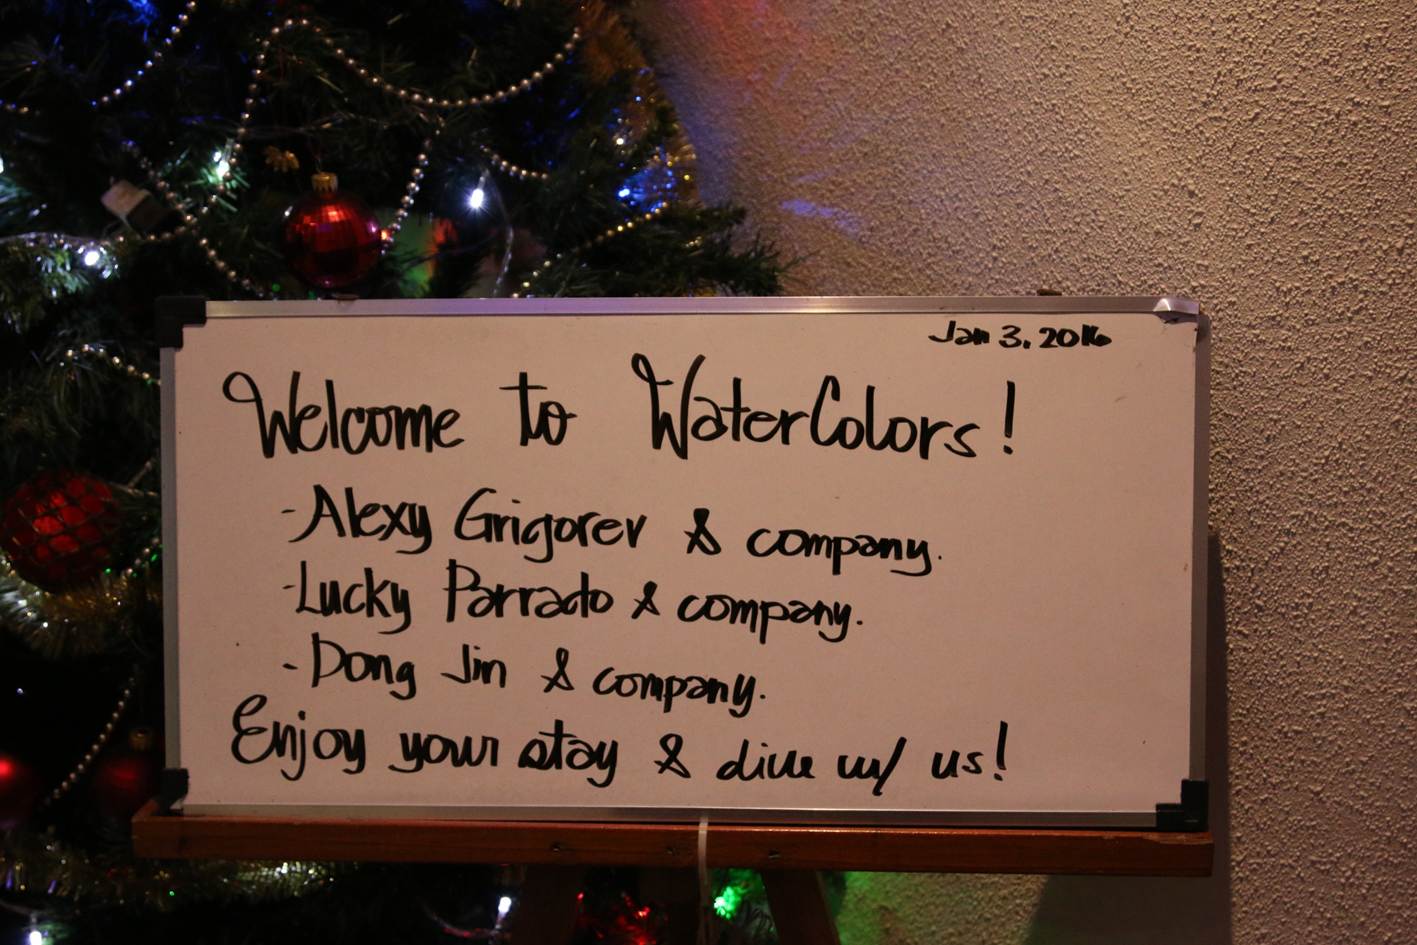 Jan 3, 2016
Welcome to WaterColors!
- Alexy Grigorev & company.
- Lucky Parrado & company.
- Dong Jin & company.
Enjoy your stay & dive w/ us!